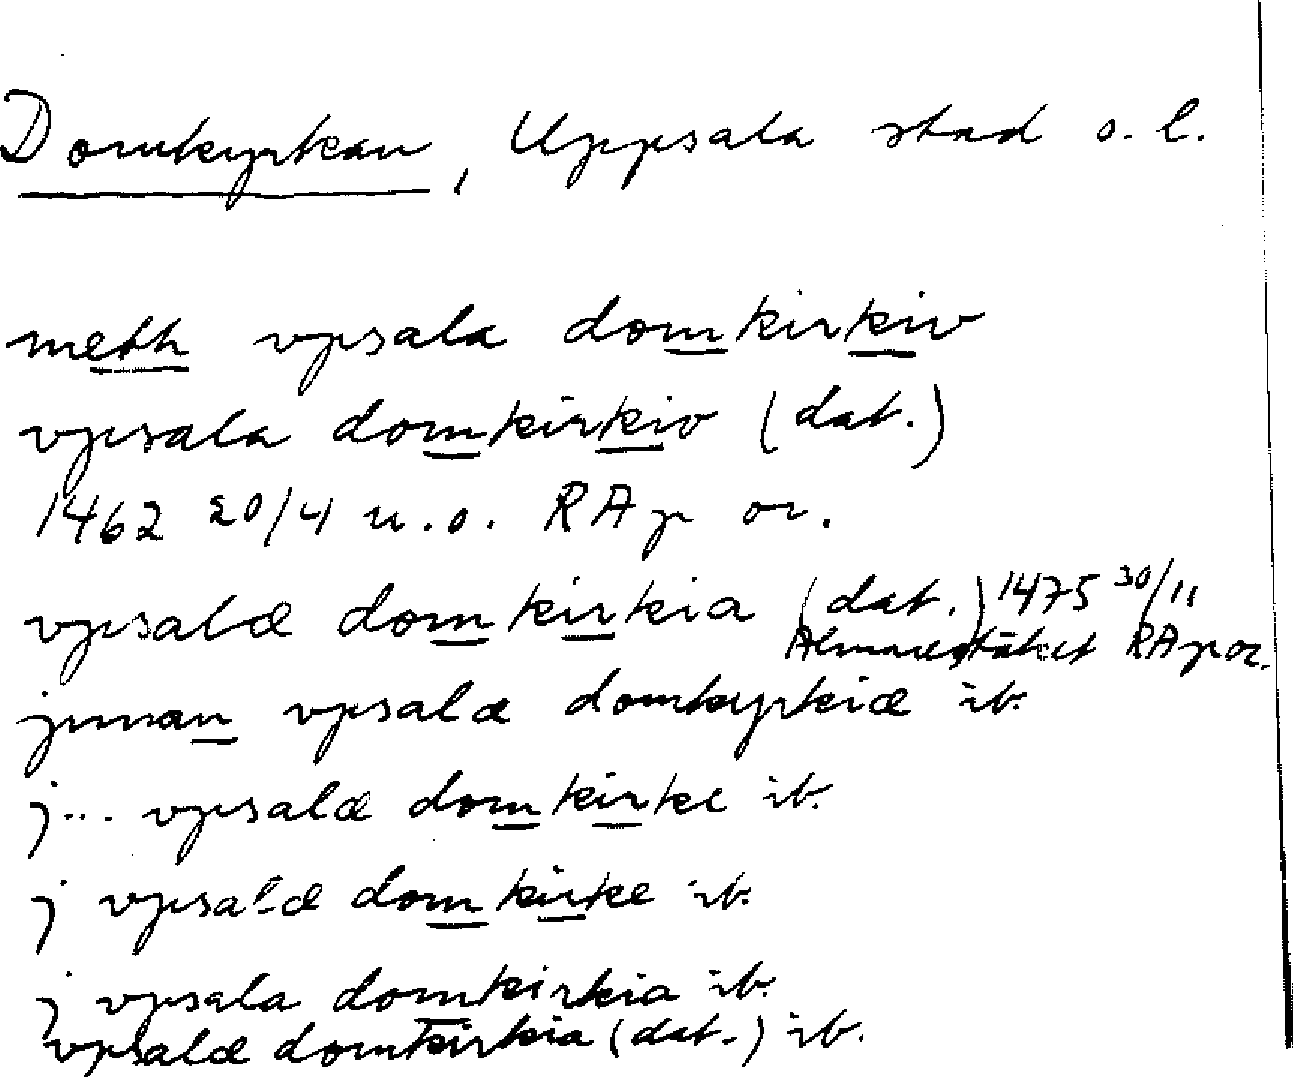 Domkyrkan, Uppsala stad o. l.
meth vpsala domkirkiv
vpsala domkirkiv (dat.)
1462 20/4 u.o. RAp or.
vpsalæ domkirkia (dat.) 1475 30/11
Almarestäket RAp or.
jnnan vpsalæ domkyrkiæ ib.
j... vpsalæ domkirke ib.
j vpsalæ domkirke ib.
j vpsala domkirkia ib.
vpsalæ domkirkia (dat.) ib.